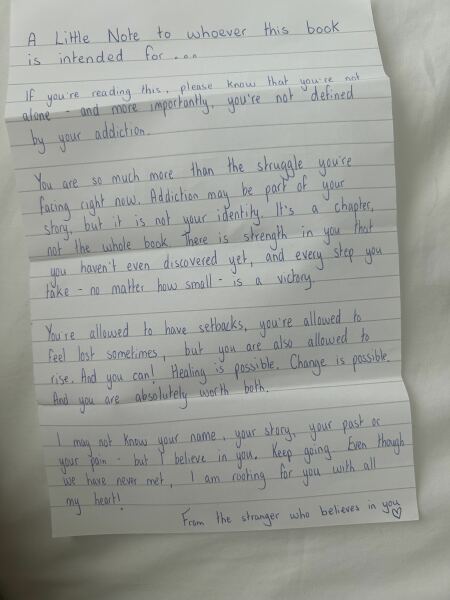 A Little Note to whoever this book
is intended for...
If you're reading this, please know that you're not
alone - and more importantly, you're not defined
by your addiction.
You are so much more than the struggle you're
facing right now. Addiction may be part of your
story, but it is not your identity. It's a chapter,
not the whole book. There is strength in you that
you haven't even discovered yet, and every step you
take - no matter how small - is a victory.
You're allowed to have setbacks, you're allowed to
feel lost sometimes, but you are also allowed to
rise. And you can! Healing is possible. Change is possible.
And you are absolutely worth both.
I may not know your name, your story, your past or
your pain - but I believe in you. Keep going. Even though
we have never met, I am rooting for you with all
my heart!
From the stranger who believes in you ♡